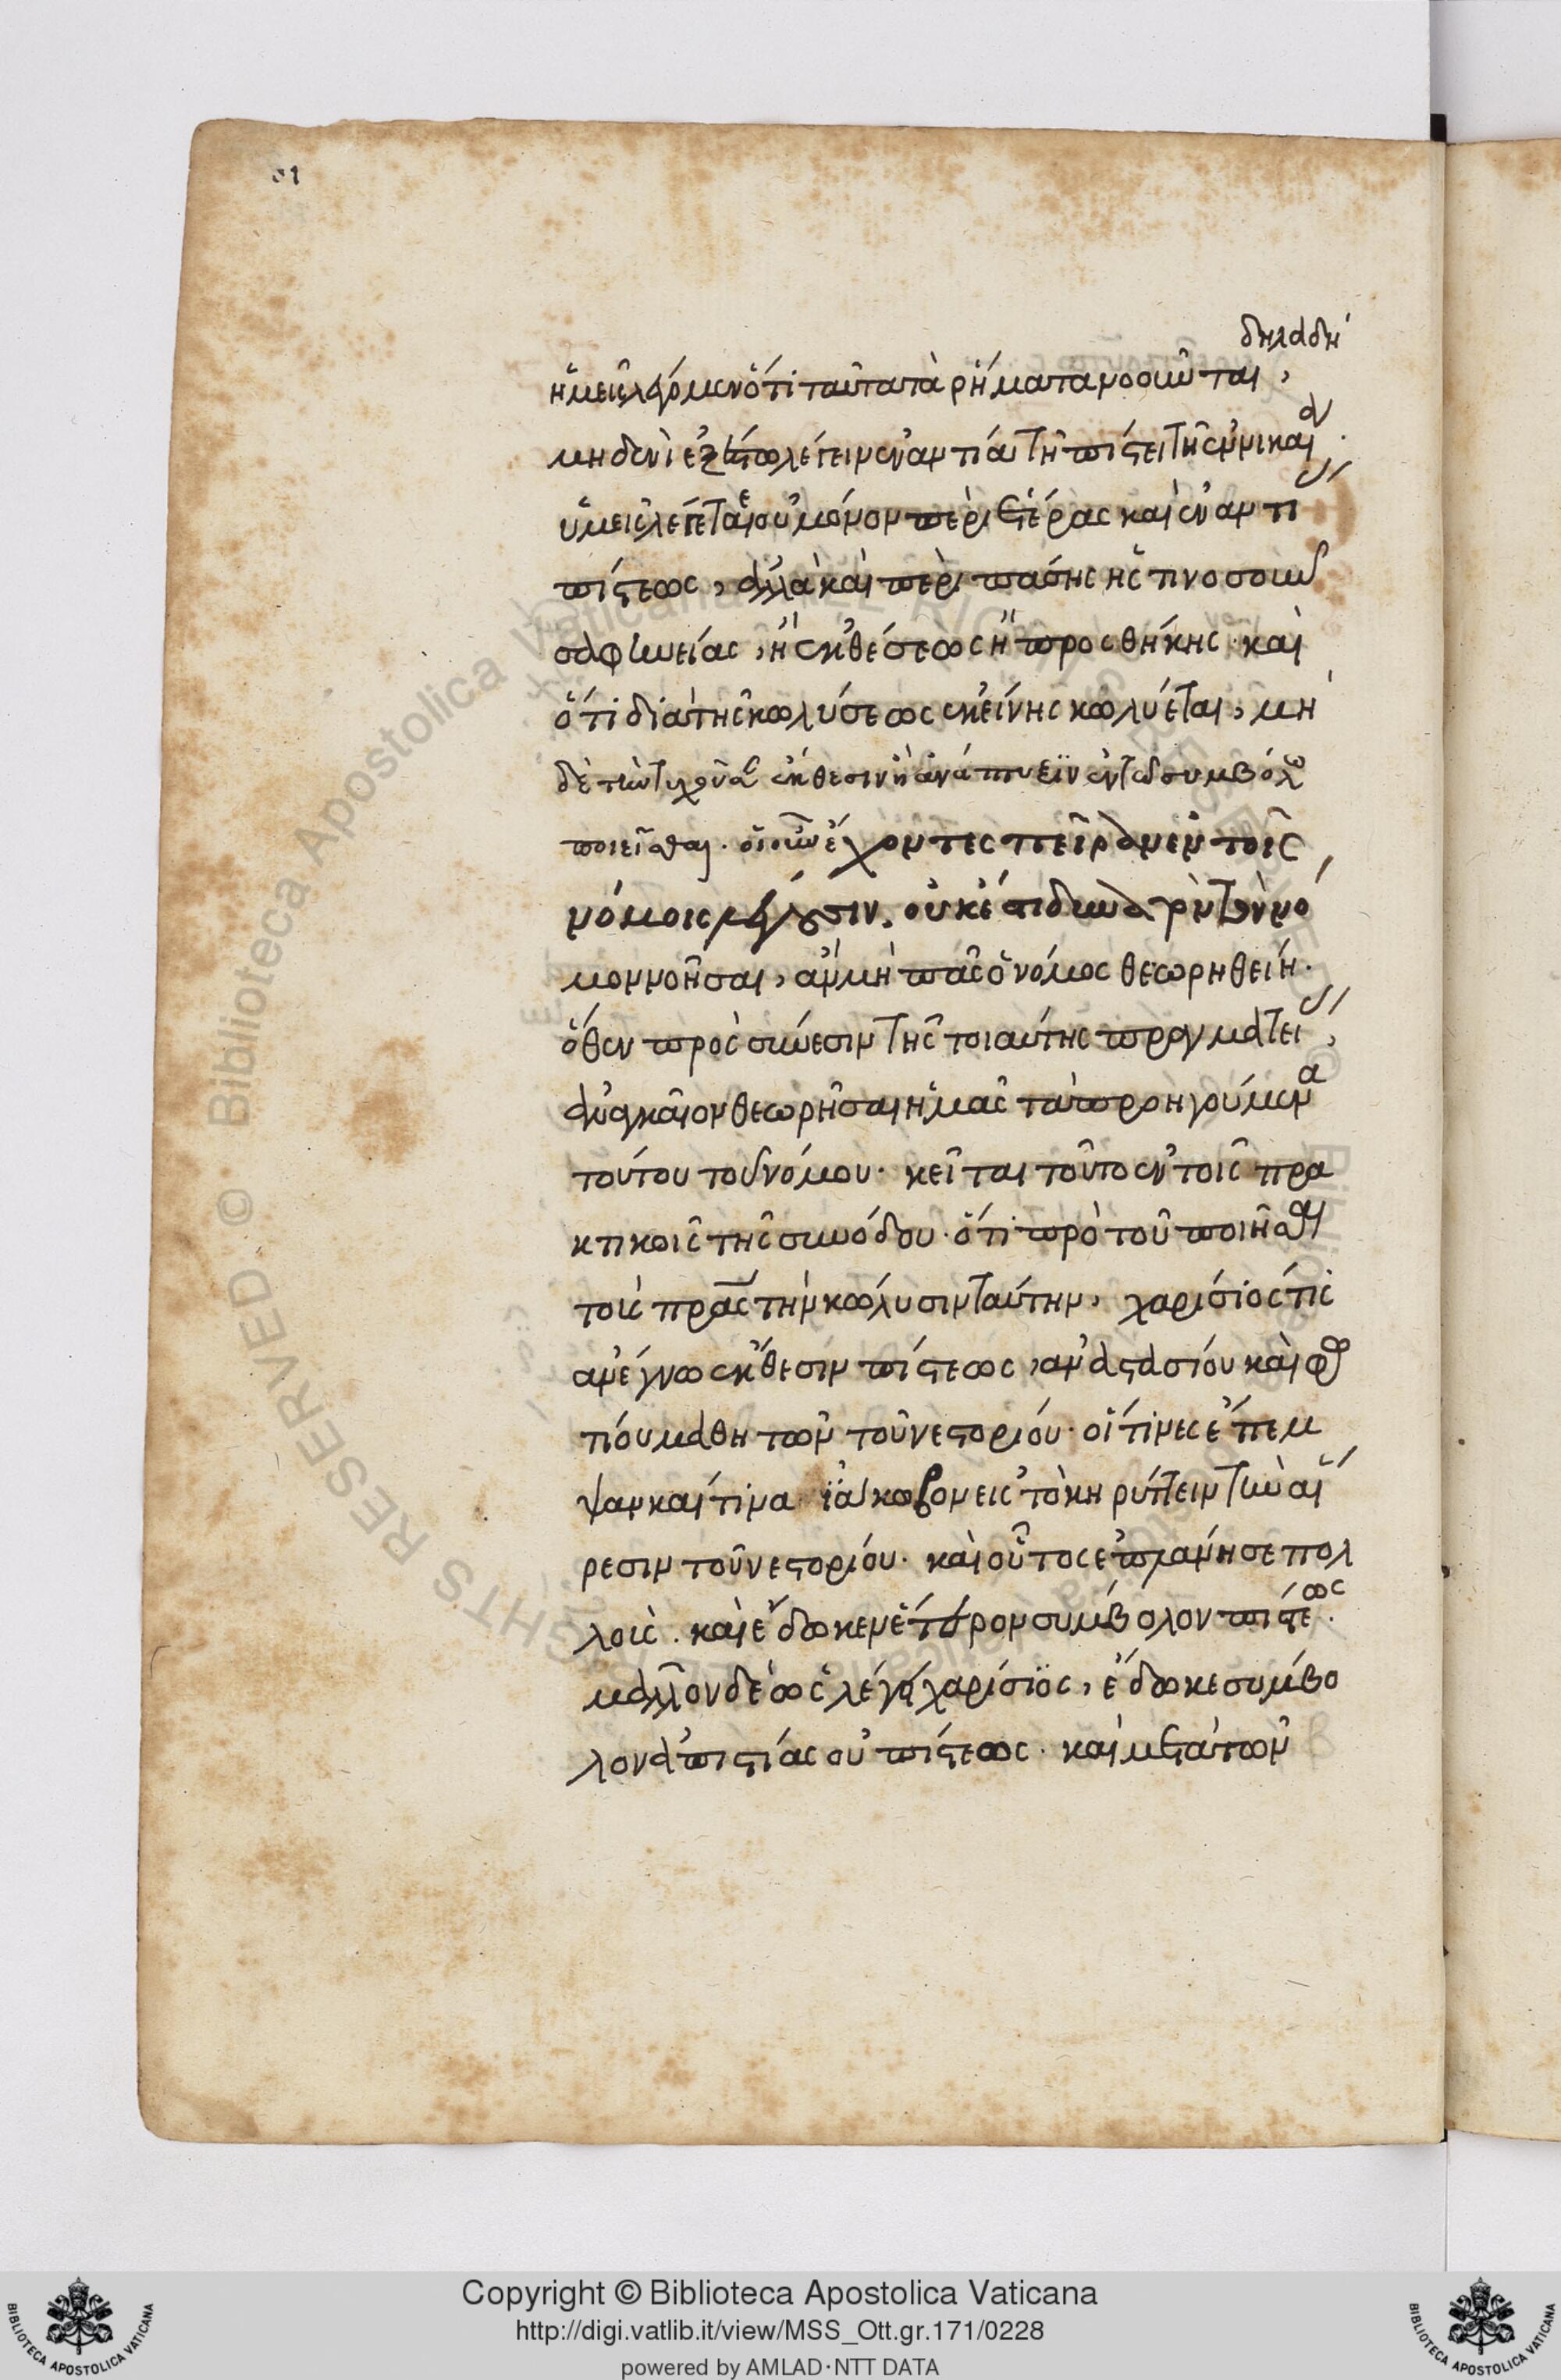 δηλαδή
ἡμεῖς λέγομεν ὅτι ταῦτα τὰ ῥήματα νοοῦνται,
μηδενὶ ἐξεῖναι λέγειν ἐναντία τῇ πίστει τῆς ἐν νικαία.
ὑμεῖς λέγετε οὐ μόνον περὶ ἑτέρας καὶ ἐναντί
πίστεως, ἀλλὰ καὶ περὶ πάσης ἧς τινοσοῦν
σαφηνείας, ἢ ἐκθέσεως ἢ προσθήκης. καὶ
ὅτι διὰ τῆς κωλύσεως ἐκείνης κωλύεται, μὴ
δὲ τὴν τυχοῦσαν ἔκθεσιν ἢ ἀνάπτυξιν ἐν τῶ συμβόλω
ποιεῖσθαι. οἱ οὖν ἔχοντες πεῖραν ἐν τοῖς
νόμοις λέγουσιν, οὐκ ἔστι δυνατὸν τὸν νό
μον νοῆσαι, ἂν μὴ πᾶς ὁ νόμος θεωρηθείη.
ὅθεν πρὸς σύνεσιν τῆς τοιαύτης πραγματεί,
ἀναγκαῖον θεωρῆσαι ἡμᾶς τὰ προηγούμενα
τούτου τοῦ νόμου. κεῖται τοῦτο ἐν τοῖς πρα
κτικοῖς τῆς συνόδου. ὅτι πρὸ τοῦ ποιῆσαι
τοὺς πρας τὴν κώλυσιν ταύτην, χαρίσιός τις
ἀνέγνω ἔκθεσιν πίστεως, ἀναστασίου καὶ φω
τίου μαθητῶν τοῦ νεστορίου. οἵτινες ἔπεμ
ψαν καί τινα ἰάκωβον εἰς τὸ κηρύττειν τὴν αἵ
ρεσιν τοῦ νεστορίου. καὶ οὗτος ἐπλάνησε πολ
λούς. καὶ ἔδωκεν ἕτερον σύμβολον πίστεως.
μᾶλλον δὲ ὡς λέγει χαρίσιος, ἔδωκε σύμβο
λον ἀπιστίας οὐ πίστεως. καὶ μετὰ τῶν
Copyright © Biblioteca Apostolica Vaticana
http://digi.vatlib.it/view/MSS_Ott.gr.171/0228
powered by AMLAD·NTT DATA